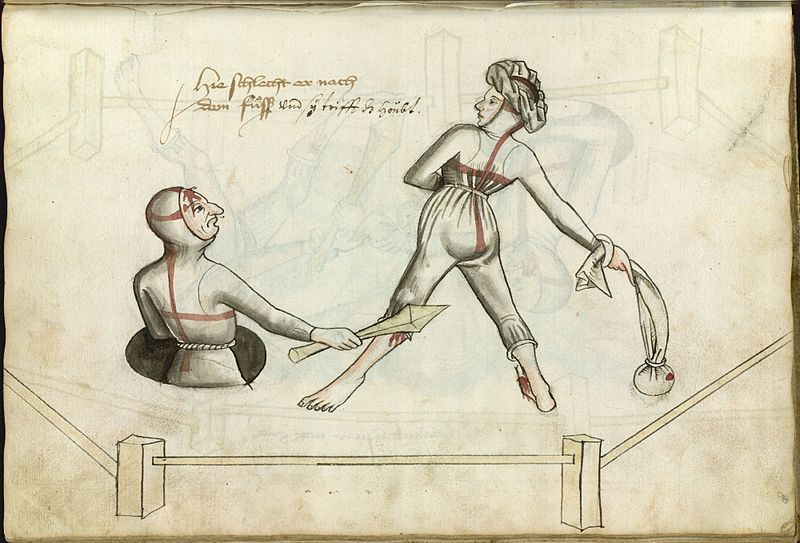 Hie schlecht er nach
dem fůsß vnd sy trifft dz hoůbt.